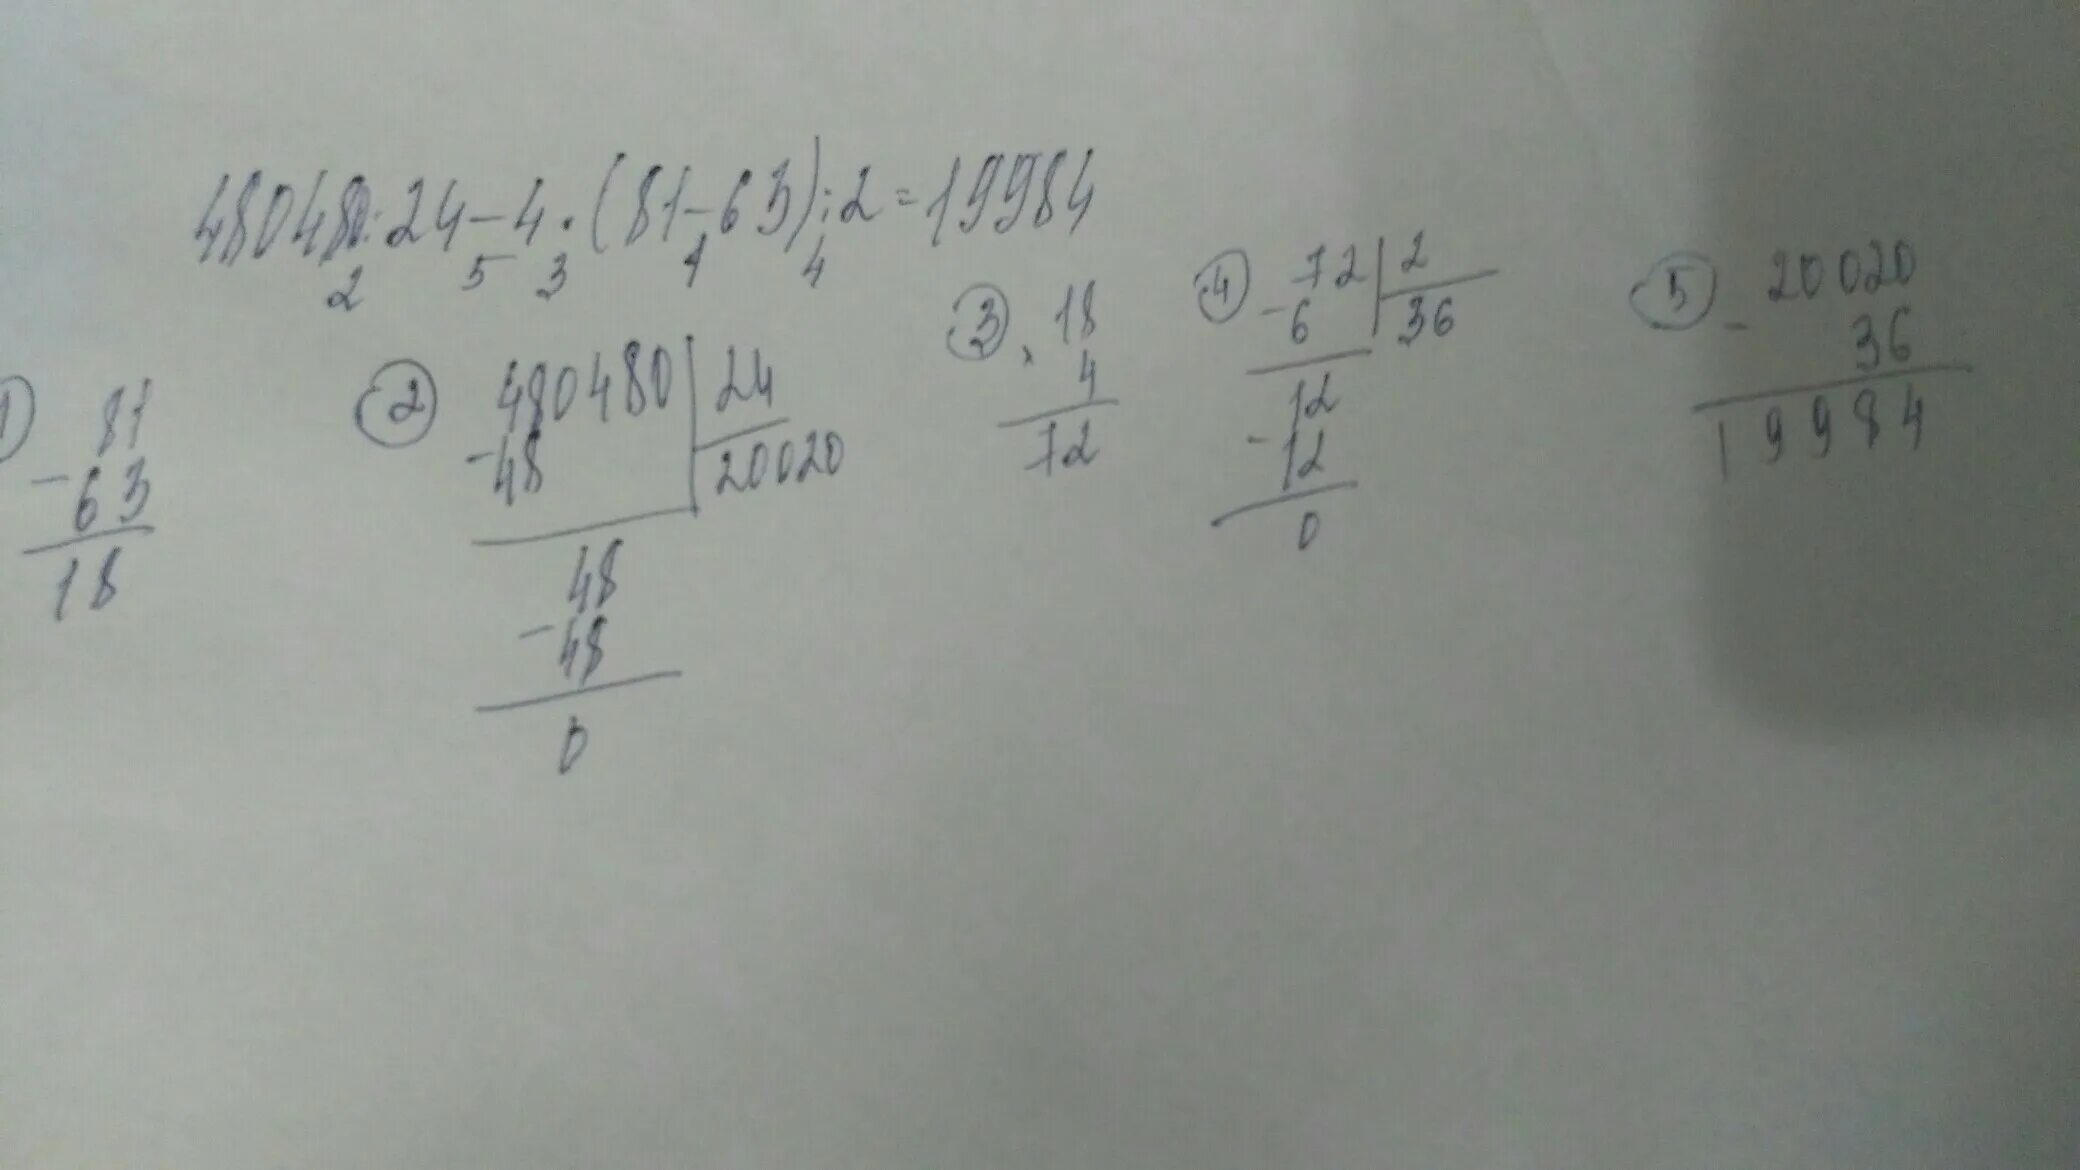 480480:24-4·(81-63):2=19984
2 5 3 1 4
1) 81
-63
18
2 480480 24
-48 20020
48
-48
0
3 18
× 4
72
4 72 2
-6 36
12
-12
0
5 20020
- 36
19984